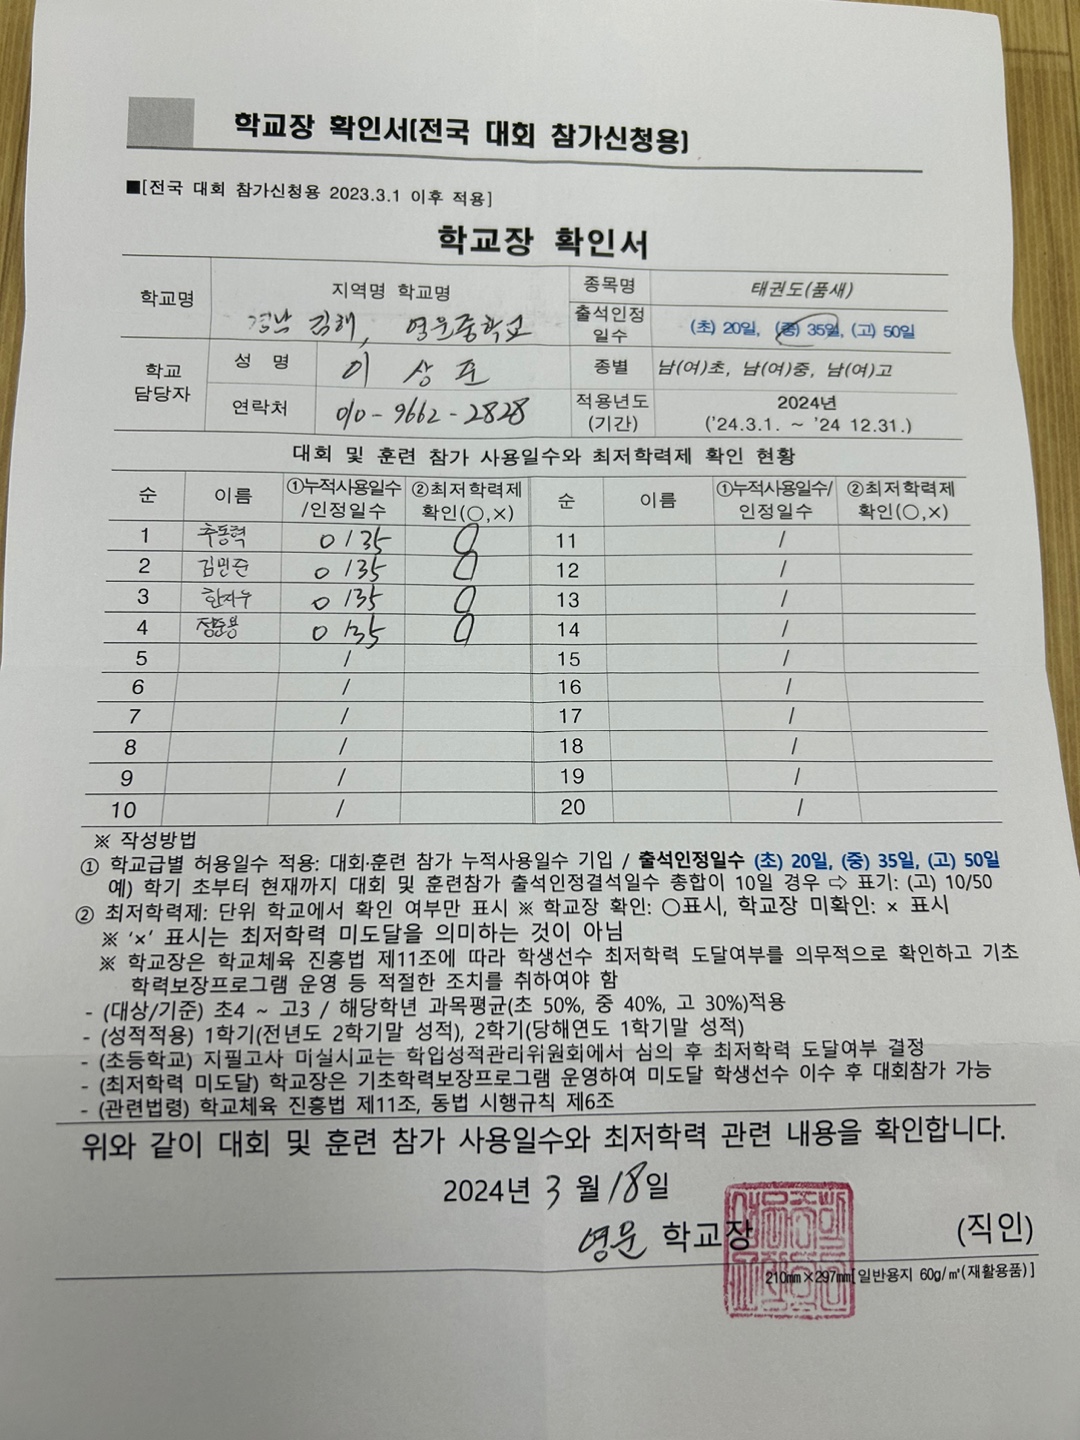 학교장 확인서(전국 대회 참가신청용)
■[전국 대회 참가신청용 2023.3.1 이후 적용]
학교장 확인서
학교명 지역명 학교명 종목명 태권도(품새)
경남 김해, 영운중학교 출석인정 일수 (초) 20일, (중) 35일, (고) 50일
학교 담당자 성 명 이 상 종별 남(여)초, 남(여)중, 남(여)고
연락처 010-9662-2828 적용년도 (기간) 2024년 ('24.3.1. ~ '24 12.31.)
대회 및 훈련 참가 사용일수와 최저학력제 확인 현황
순 이름 ①누적사용일수/인정일수 ②최저학력제 확인(○,×) 순 이름 ①누적사용일수/인정일수 ②최저학력제 확인(○,×)
1 추동력 0/35 O 11 /
2 김민준 0/35 O 12 /
3 한지우 0/35 O 13 /
4 정준용 0/35 O 14 /
5 / 15 /
6 / 16 /
7 / 17 /
8 / 18 /
9 / 19 /
10 / 20 /
※ 작성방법
① 학교급별 허용일수 적용: 대회·훈련 참가 누적사용일수 기입 / 출석인정일수 (초) 20일, (중) 35일, (고) 50일
예) 학기 초부터 현재까지 대회 및 훈련참가 출석인정결석일수 총합이 10일 경우 ⇨ 표기: (고) 10/50
② 최저학력제: 단위 학교에서 확인 여부만 표시 ※ 학교장 확인: ○표시, 학교장 미확인: × 표시
※ '×' 표시는 최저학력 미도달을 의미하는 것이 아님
※ 학교장은 학교체육 진흥법 제11조에 따라 학생선수 최저학력 도달여부를 의무적으로 확인하고 기초
학력보장프로그램 운영 등 적절한 조치를 취하여야 함
- (대상/기준) 초4 ~ 고3 / 해당학년 과목평균(초 50%, 중 40%, 고 30%)적용
- (성적적용) 1학기(전년도 2학기말 성적), 2학기(당해연도 1학기말 성적)
- (초등학교) 지필고사 미실시교는 학업성적관리위원회에서 심의 후 최저학력 도달여부 결정
- (최저학력 미도달) 학교장은 기초학력보장프로그램 운영하여 미도달 학생선수 이수 후 대회참가 가능
- (관련법령) 학교체육 진흥법 제11조, 동법 시행규칙 제6조
위와 같이 대회 및 훈련 참가 사용일수와 최저학력 관련 내용을 확인합니다.
2024년 3 월 18일
영운 학교장 (직인)
210㎜×297㎜[일반용지 60g/㎡(재활용품)]